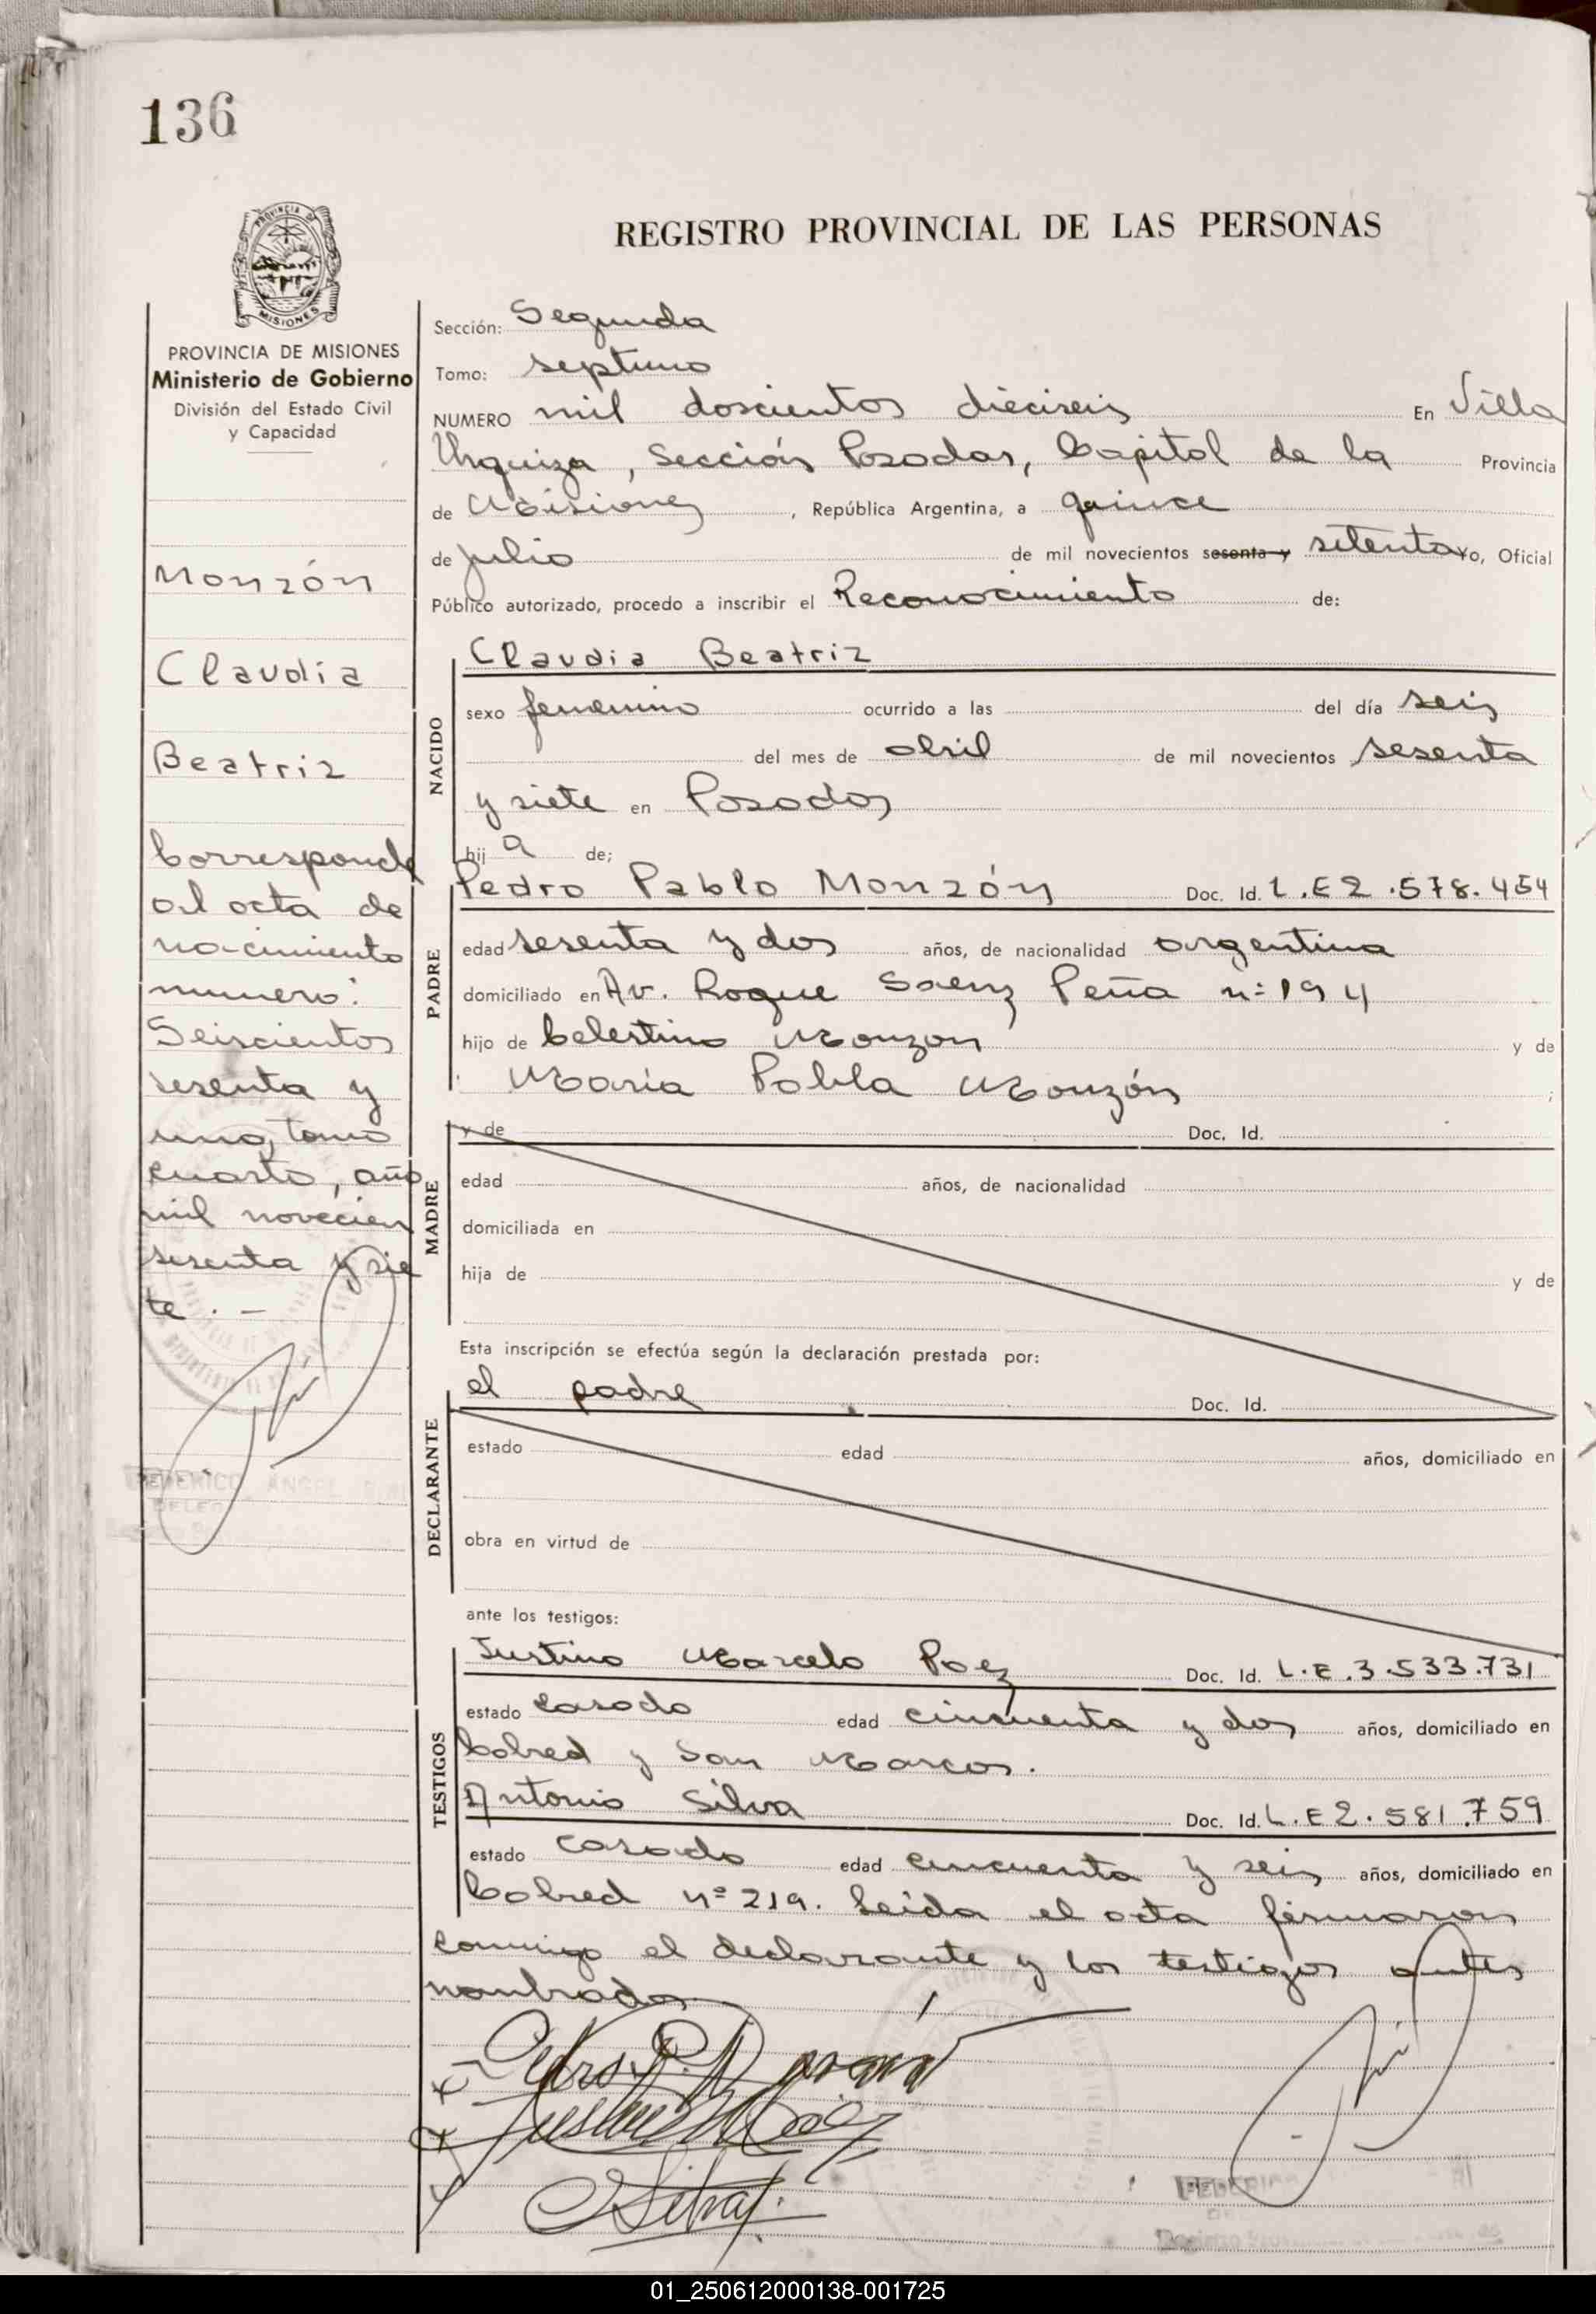 136
PROVINCIA DE
MISIONES
REGISTRO PROVINCIAL DE LAS PERSONAS
PROVINCIA DE MISIONES
Ministerio de Gobierno
División del Estado Civil
y Capacidad
Monzón
Claudia
Beatriz
Corresponde
al acta de
nacimiento
numero:
Seiscientos
sesenta y
uno, tomo
cuarto, año
mil novecien
sesenta y sie
te . –
FEDERICO ANGEL
Sección: Segunda
Tomo: septimo
NUMERO mil doscientos dieciseis En Villa
Urquiza, Sección Posadas, Capital de la Provincia
de Misiones, República Argentina, a quince
de julio de mil novecientos sesenta y setenta yo, Oficial
Público autorizado, procedo a inscribir el Reconocimiento de:
NACIDO
Claudia Beatriz
sexo femenino ocurrido a las del día seis
del mes de abril de mil novecientos sesenta
y siete en Posadas
hij a de;
PADRE
Pedro Pablo Monzón Doc. Id. L.E 2.578.454
edad sesenta y dos años, de nacionalidad argentina
domiciliado en Av. Roque Saenz Peña n= 194
hijo de Celestino Monzon y de
Maria Pabla Monzón ;
MADRE
y de Doc. Id.
edad años, de nacionalidad
domiciliada en
hija de y de
Esta inscripción se efectúa según la declaración prestada por:
DECLARANTE
el padre Doc. Id.
estado edad años, domiciliado en
obra en virtud de
ante los testigos:
TESTIGOS
Justino Marcelo Paez Doc. Id. L.E.3.533.731
estado casado edad cincuenta y dos años, domiciliado en
Cobred y San Marcos.
Antonio Silva Doc. Id. L.E 2.581.759
estado casado edad cincuenta y seis años, domiciliado en
Cobred nº 219. Leida el acta firmaron
conmigo el declarante y los testigos antes
nombrados
Pedro P. Monzón
Justino M Paez
A Silva
01_250612000138-001725